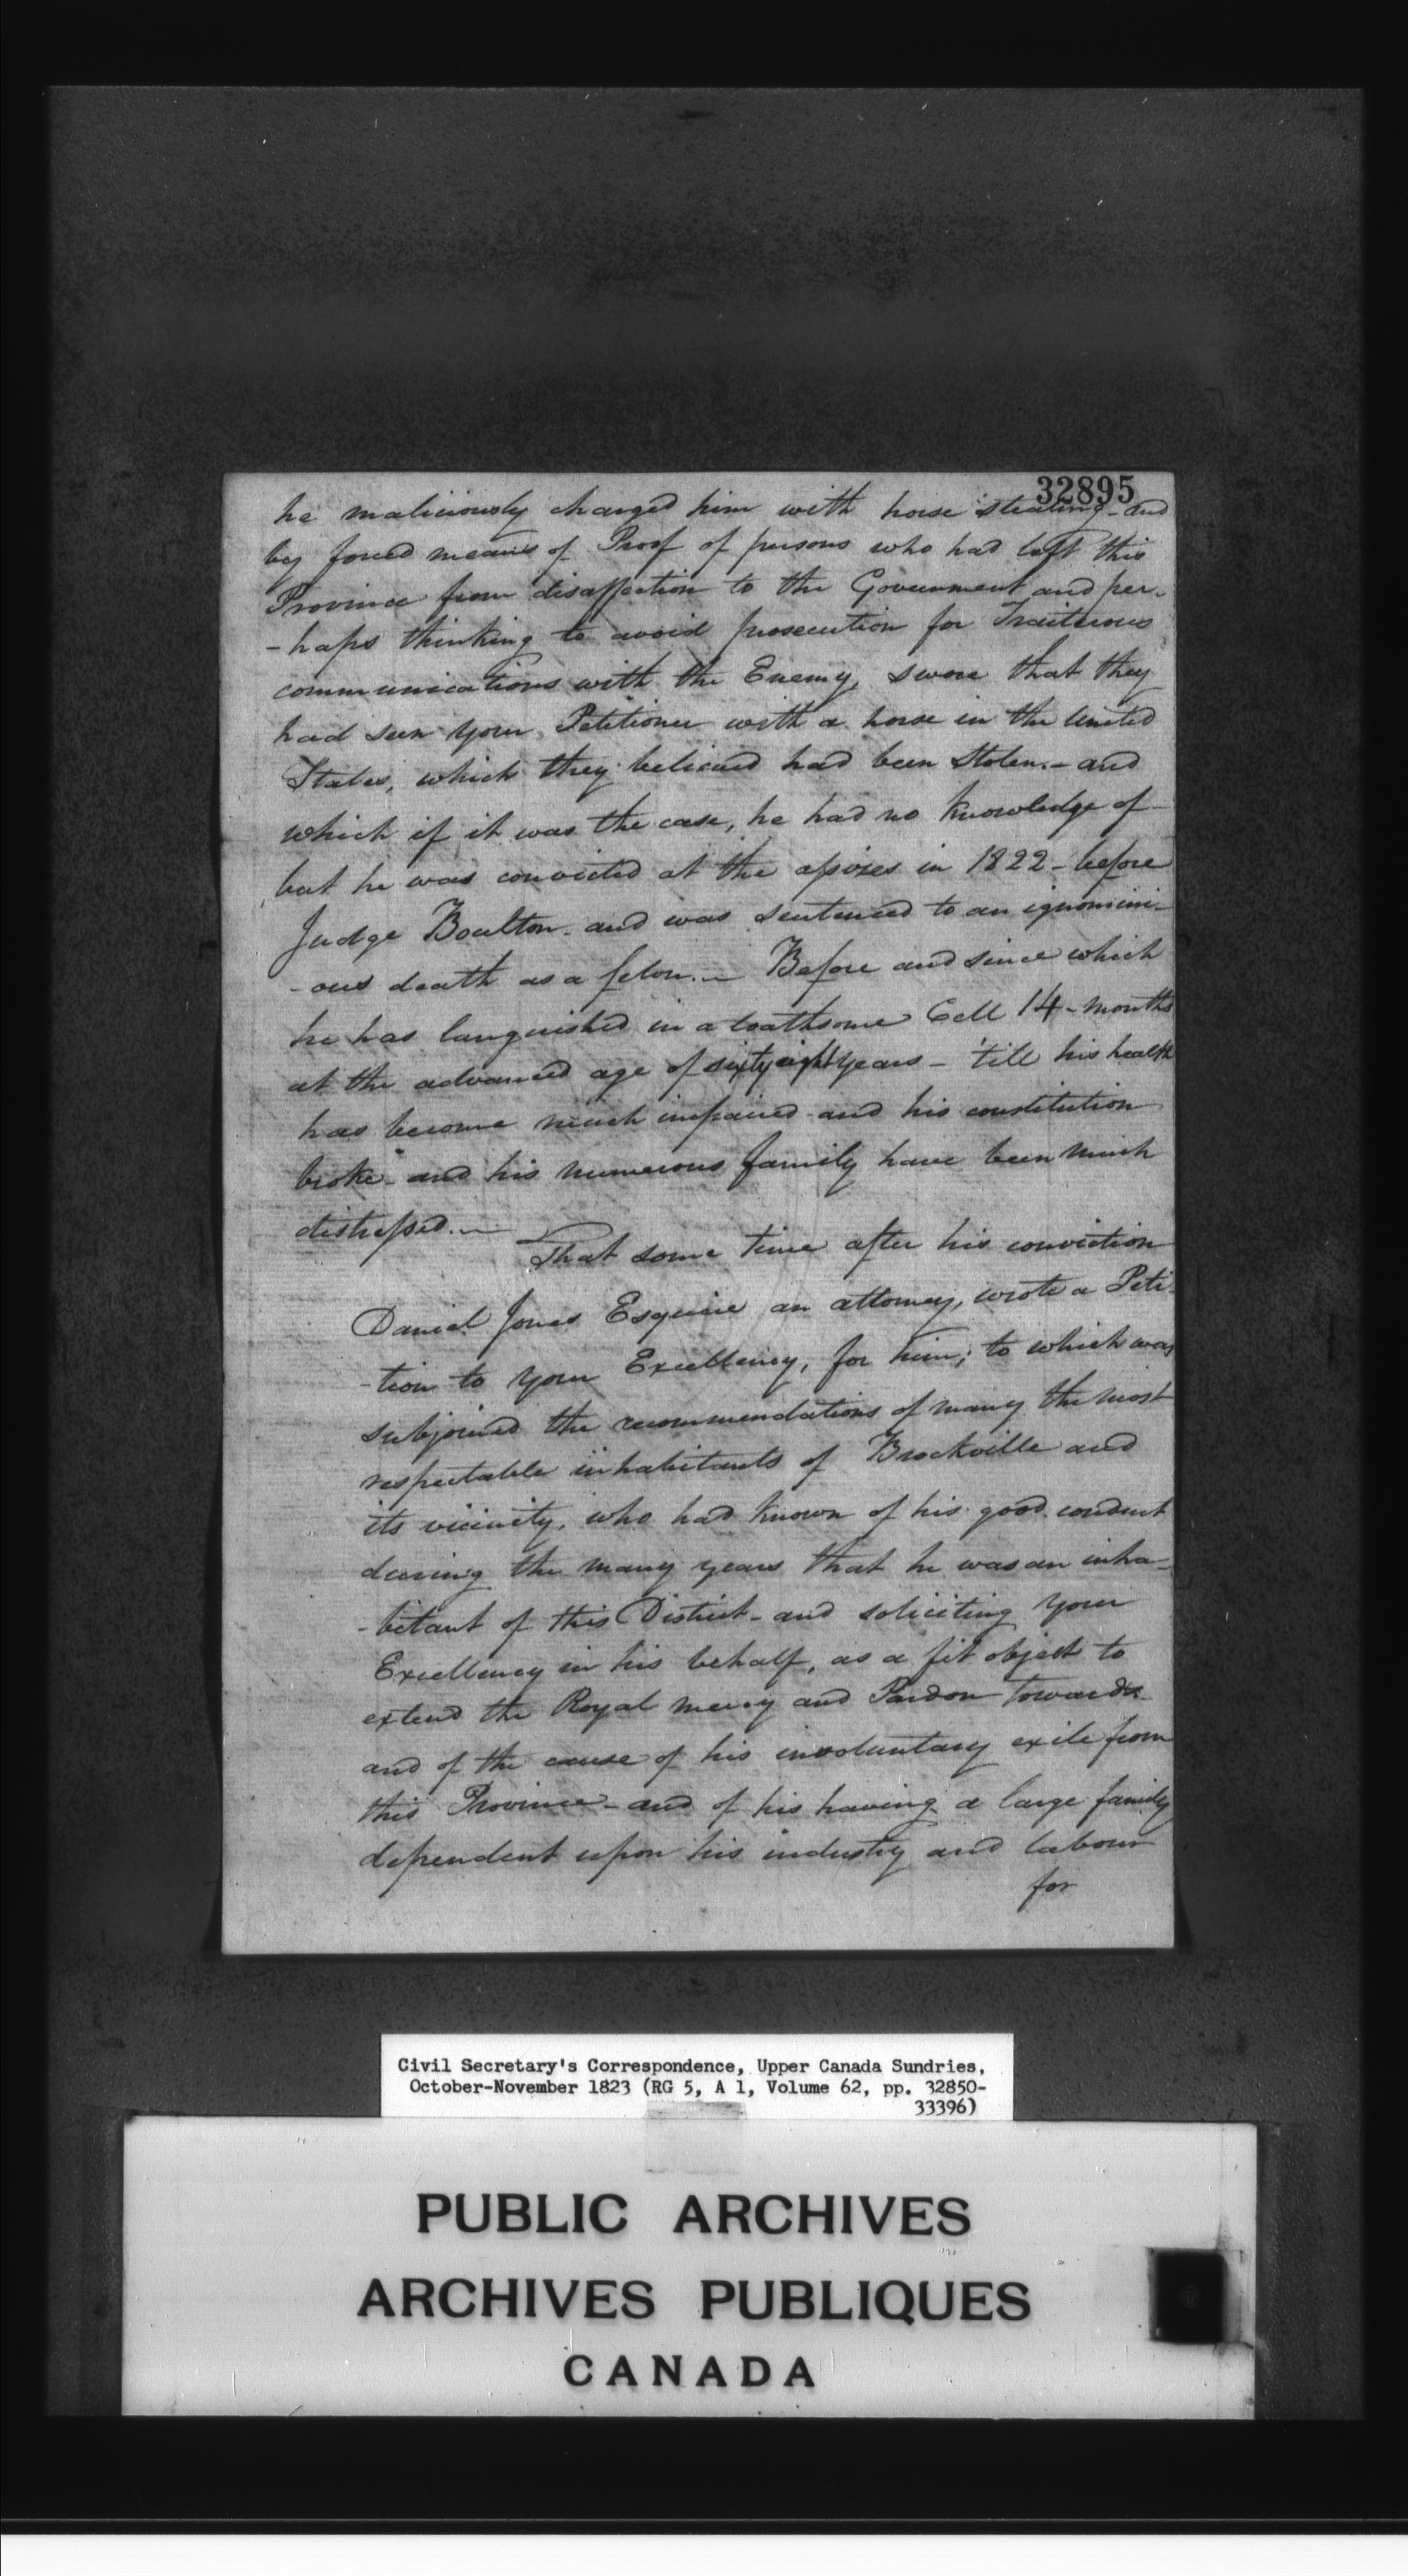 32895
he maliciously charged him with horse stealing - and
by forced means of Proof of persons who had left this
Province from disaffection to the Government and per-
-haps thinking to avoid prosecution for Traiterous
communications with the Enemy, swore that they
had seen your Petitioner with a horse in the United
States, which they believed had been Stolen. - and
which if it was the case, he had no knowledge of -
but he was convicted at the assizes in 1822 - before
Judge Boulton - and was sentenced to an ignomini-
-ous death as a felon. - Before and since which
he has languished in a loathsome Cell 14 - months
at the advanced age of sixty eight years - 'till his health
has become much impaired and his constitution
broke - and his numerous family have been much
distressed. -
That some time after his conviction
Daniel Jones Esquire an attorney, wrote a Peti-
-tion to your Excellency, for him; to which was
subjoined the recommendations of many the most
respectable inhabitants of Brockville and
its vicinity, who had known of his good conduct
during the many years that he was an inha-
-bitant of this District - and soliciting your
Excellency in his behalf, as a fit object to
extend the Royal mercy and Pardon towards
and of the cause of his involuntary exile from
this Province - and of his having a large family
dependent upon his industry and labour
for
Civil Secretary's Correspondence, Upper Canada Sundries,
October-November 1823 (RG 5, A 1, Volume 62, pp. 32850-
33396)
PUBLIC ARCHIVES
ARCHIVES PUBLIQUES
CANADA